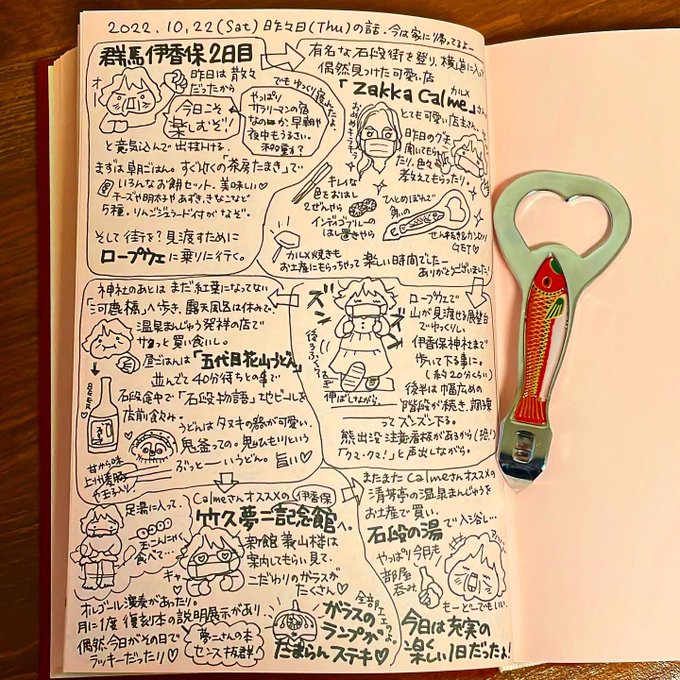 2022.10.22(Sat) 昨々日(Thu)の話.今は家に帰ってるよー
群馬伊香保2日目
昨日は散々
だったから
今日こそ
楽しむぞ!
と意気込んで出掛ける.
でもゆっくり
やっぱり
サラリーマンの宿
なのか、早朝や
夜中もうるさい。
まずは朝ごはん。すぐ近くの「茶房たまき」で
いろんなお餅セット、美味しい♡
チーズや明太子やあずき、きなこなど
5種。りんごジュース付がなぞ。
そして街を?見渡すために
ロープウェイに乗りに行く。
有名な石段街を登り、横道に入って
偶然見つけた可愛い店
カルメ
「Zakka Calme」さん
とても可愛い店主さん。
昨日のグチを
聞いてもらっ
たり、色々
教えてもらったり、
キレイな
色をおはし
2ぜんやら
インディゴブルーの
はし置きやら
ひとめぼれで
GET♡
カルメ焼きも
お土産にもらっちゃって楽しい時間でしたー
ありがとうございました!
ロープウェイで
山が見渡せる展望台
でゆっくりし、
伊香保神社まで
歩いて下る事に。
(約20分くらい)
後半は幅広めの
階段が続き、調子乗
ってズンズン下る。
熊出没注意看板があるから(恐!)
「クマ・クマ!」と声出しながら。
ズン
ズン
伸ばしながら、
神社のあとはまだ紅葉になってない
「河鹿橋」へ歩き、露天風呂は休みで、
温泉まんじゅう発祥の店で
サクっと買い食いし。
昼ごはんは「五代目花山うどん」
並んで40分待ちとの事で
石段途中で「石段物語」地ビールを
店前飲み。
BEER
うどんはタヌキの器が可愛い、
鬼釜っての。鬼ひもりという
ぶっとーいうどん。旨い♡
Calmeさんオススメの伊香保
竹久夢二記念館へ。
足湯に入って、
玉こんにゃく
食べて…
新館 義山楼は
案内してもらい見て、
こだわりのガラスが
たくさん♡
オルゴール演奏があったり。
月に1度 復刻本の説明展示があり、
偶然、今日がその日で
ラッキーだったり♡
夢二さんの本
センス抜群!
ガラスの
ランプが
たまらんステキ♡
またまたCalmeさんオススメの
清芳亭の温泉まんじゅうを
お土産で買い、
石段の湯で入浴し…
やっぱり今日も
部屋
呑み
もーどーでもいい.
今日は充実の
楽しい1日だったよ!